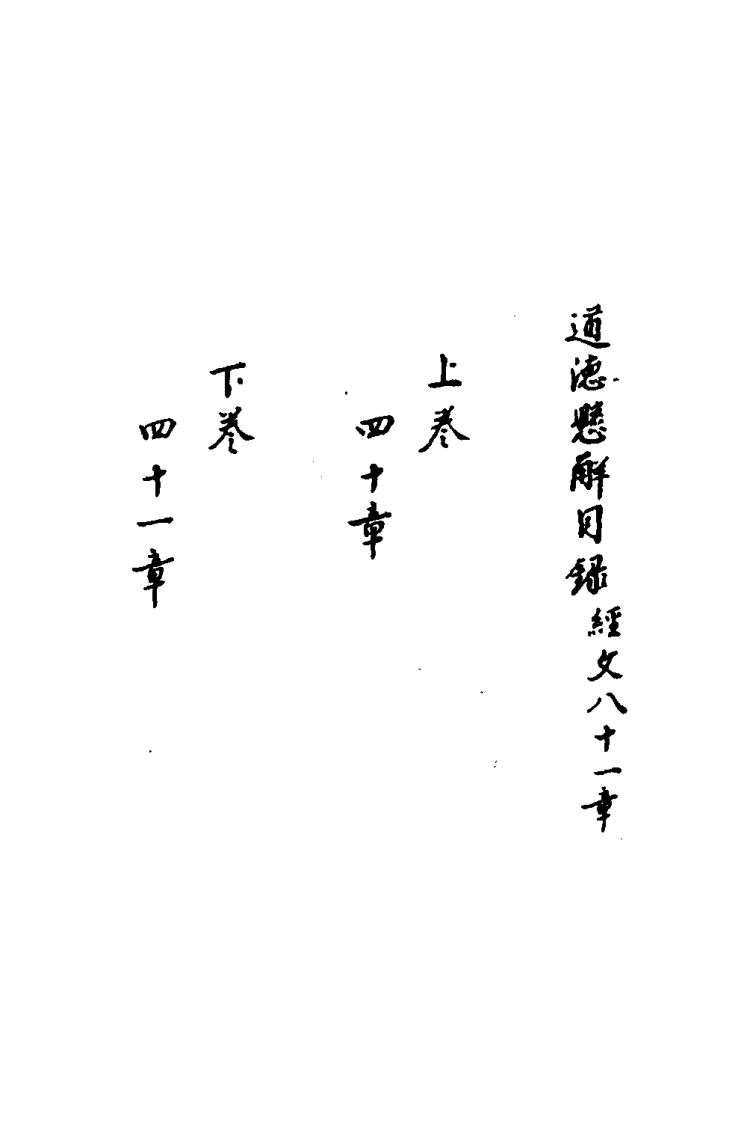 道德懸解目録經文八十一章
上卷
四十章
下卷
四十一章